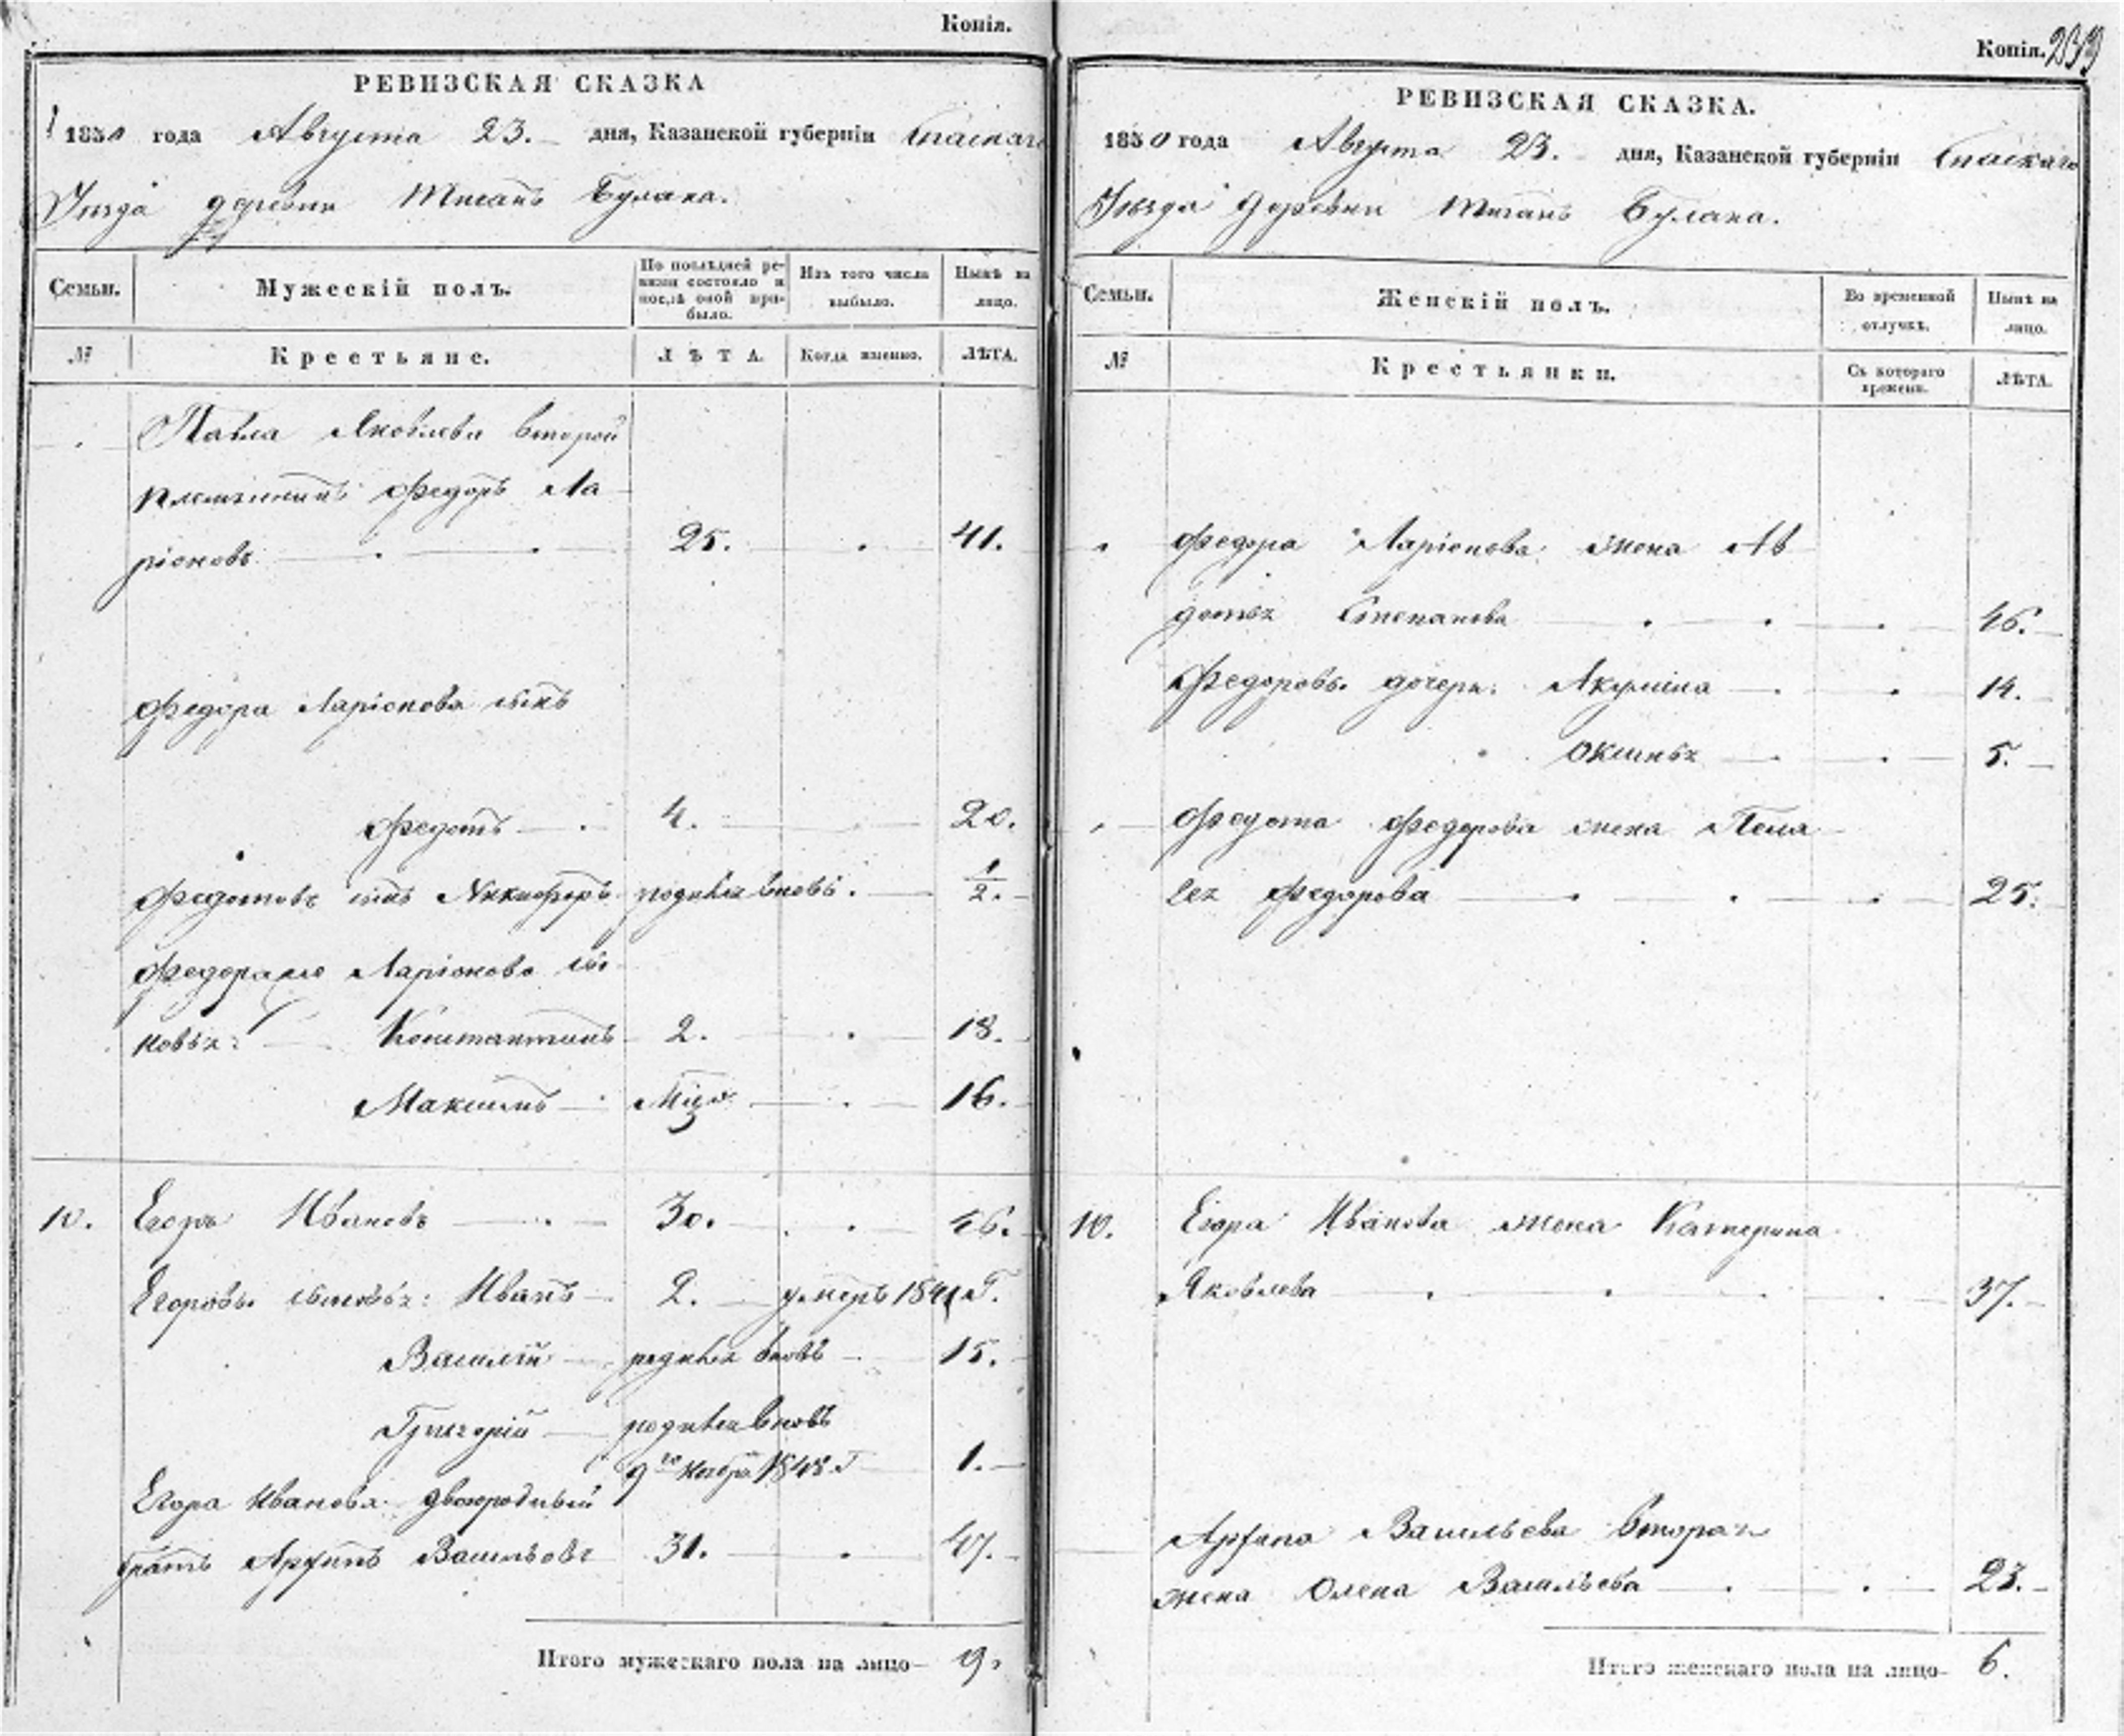 Копія.
РЕВИЗСКАЯ СКАЗКА
1850 года Августа 23. дня, Казанской губерніи Спаскаго
Уѣзда деревни Тиганъ Булака.
Семьи. Мужескій полъ. По послѣдней ревизіи состояло и послѣ оной прибыло. Изъ того числа выбыло. Нынѣ на лицо.
№ Крестьяне. ЛѢТА. Когда именно. ЛѢТА.
Павла Яковлева второй
племянникъ Федоръ Ла
ріоновъ 25. 41.
Федора Ларіонова сынъ
Федотъ 4. 20.
Федотовъ сынъ Никифоръ родился вновь. 1/2.
Федора же Ларіонова сы
новья: Константинъ 2. 18.
Максимъ 16.
10. Егоръ Ивановъ 30. 46.
Егоровы сыновья: Иванъ 2. умеръ 1841 г.
Василій родился вновь 15.
Григорій родился вновь
9го Ноября 1848 г 1.
Егора Иванова двоюродный
братъ Архипъ Васильевъ 31. 47.
Итого мужескаго пола на лицо 9.
Копія. 239
РЕВИЗСКАЯ СКАЗКА.
1850 года Августа 23. дня, Казанской губерніи Спаскаго
Уѣзда деревни Тиганъ Булака.
Семьи. Женскій полъ. Во временной отлучкѣ. Нынѣ на лицо.
№ Крестьянки. Съ котораго времени. ЛѢТА.
Федора Ларіонова жена Ав
дотья Степанова 46.
Федоровы дочери: Акулина 14.
Оксинья 5.
Федота Федорова жена Пела
гея Федорова 25.
10. Егора Иванова жена Катерина
Яковлева 37.
Архипа Васильева вторая
жена Олена Васильева 23.
Итого женскаго пола на лицо 6.